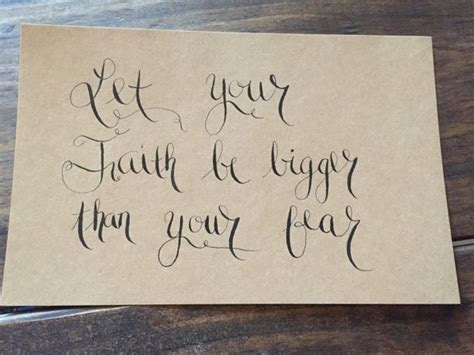 Let your
Faith be bigger
than your fear